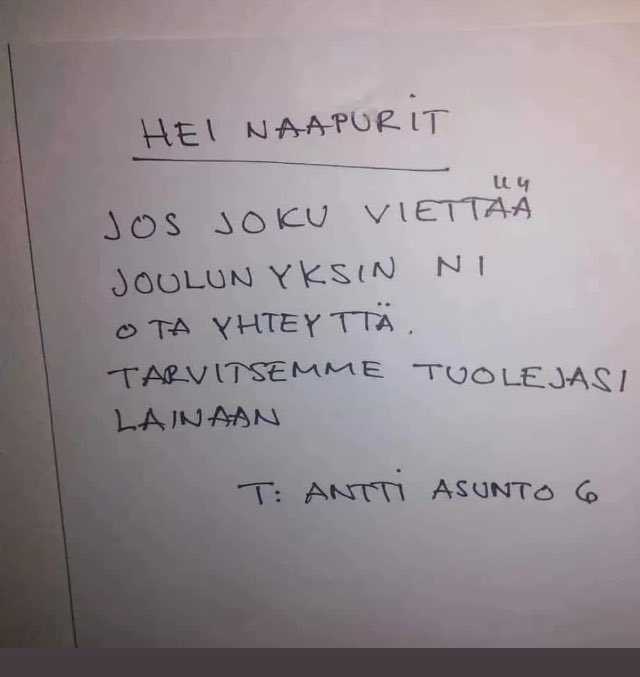 HEI NAAPURIT
JOS JOKU VIETTÄÄ
JOULUN YKSIN NI
OTA YHTEYTTÄ.
TARVITSEMME TUOLEJASI
LAINAAN
T: ANTTI ASUNTO 6